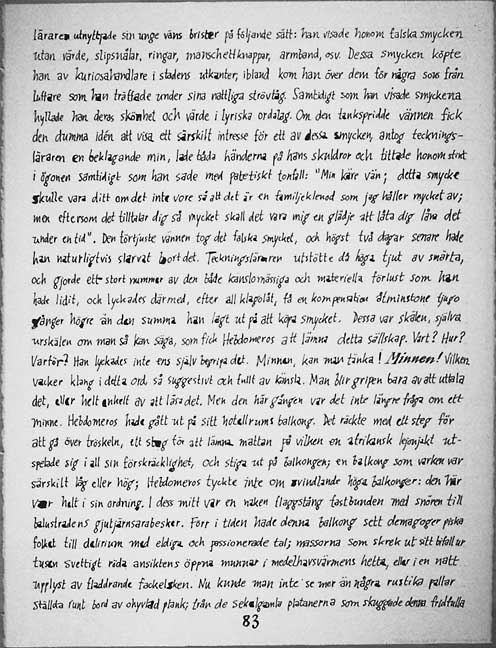 läraren utnyttjade sin unge väns brister på följande sätt: han visade honom falska smycken
utan värde, slipsnålar, ringar, manschettknappar, armband, osv. Dessa smycken köpte
han av kuriosahandlare i stadens utkanter, ibland kom han över dem för några sous från
luffare som han träffade under sina nattliga strövtåg. Samtidigt som han visade smyckena
hyllade han deras skönhet och värde i lyriska ordalag. Om den tankspridde vännen fick
den dumma idén att visa ett särskilt intresse för ett av dessa smycken, antog tecknings-
läraren en beklagande min, lade båda händerna på hans skuldror och tittade honom stint
i ögonen samtidigt som han sade med patetiskt tonfall: "Min käre vän; detta smycke
skulle vara ditt om det inte vore så att det är en familjeklenod som jag håller mycket av;
men eftersom det tilltalar dig så mycket skall det vara mig en glädje att låta dig låna det
under en tid". Den förtjuste vännen tog det falska smycket, och högst två dagar senare hade
han naturligtvis slarvat bort det. Teckningsläraren utstötte då höga tjut av smärta,
och gjorde ett stort nummer av den både känslomässiga och materiella förlust som han
hade lidit, och lyckades därmed, efter all klagolåt, få en kompensation åtminstone tjugo
gånger högre än den summa han lagt ut på att köpa smycket. Dessa var skälen, själva
urskälen om man så kan säga, som fick Hebdomeros att lämna detta sällskap. Vart? Hur?
Varför? Han lyckades inte ens själv begripa det. Minnen, kan man tänka! Minnen! Vilken
vacker klang i detta ord, så suggestivt och fullt av känsla. Man blir gripen bara av att uttala
det, eller helt enkelt av att läsa det. Men den här gången var det inte längre fråga om ett
minne. Hebdomeros hade gått ut på sitt hotellrums balkong. Det räckte med ett steg för
att gå över tröskeln, ett steg för att lämna mattan på vilken en afrikansk lejonjakt ut-
spelade sig i all sin förskräcklighet, och stiga ut på balkongen; en balkong som varken var
särskilt låg eller hög; Hebdomeros tyckte inte om svindlande höga balkonger: den här
var helt i sin ordning. I dess mitt var en naken flaggstång fastbunden med snören till
balustradens gjutjärnsarabesker. Förr i tiden hade denna balkong sett demagoger piska
folket till delirium med eldiga och passionerade tal; massorna som skrek ut sitt bifall ur
tusen svettigt röda ansiktens öppna munnar i medelhavsvärmens hetta, eller i en natt
upplyst av fladdrande fackelsken. Nu kunde man inte se mer än några rustika pallar
ställda runt bord av ohyvlad plank; från de sekelgamla platanerna som skuggade denna fridfulla
83